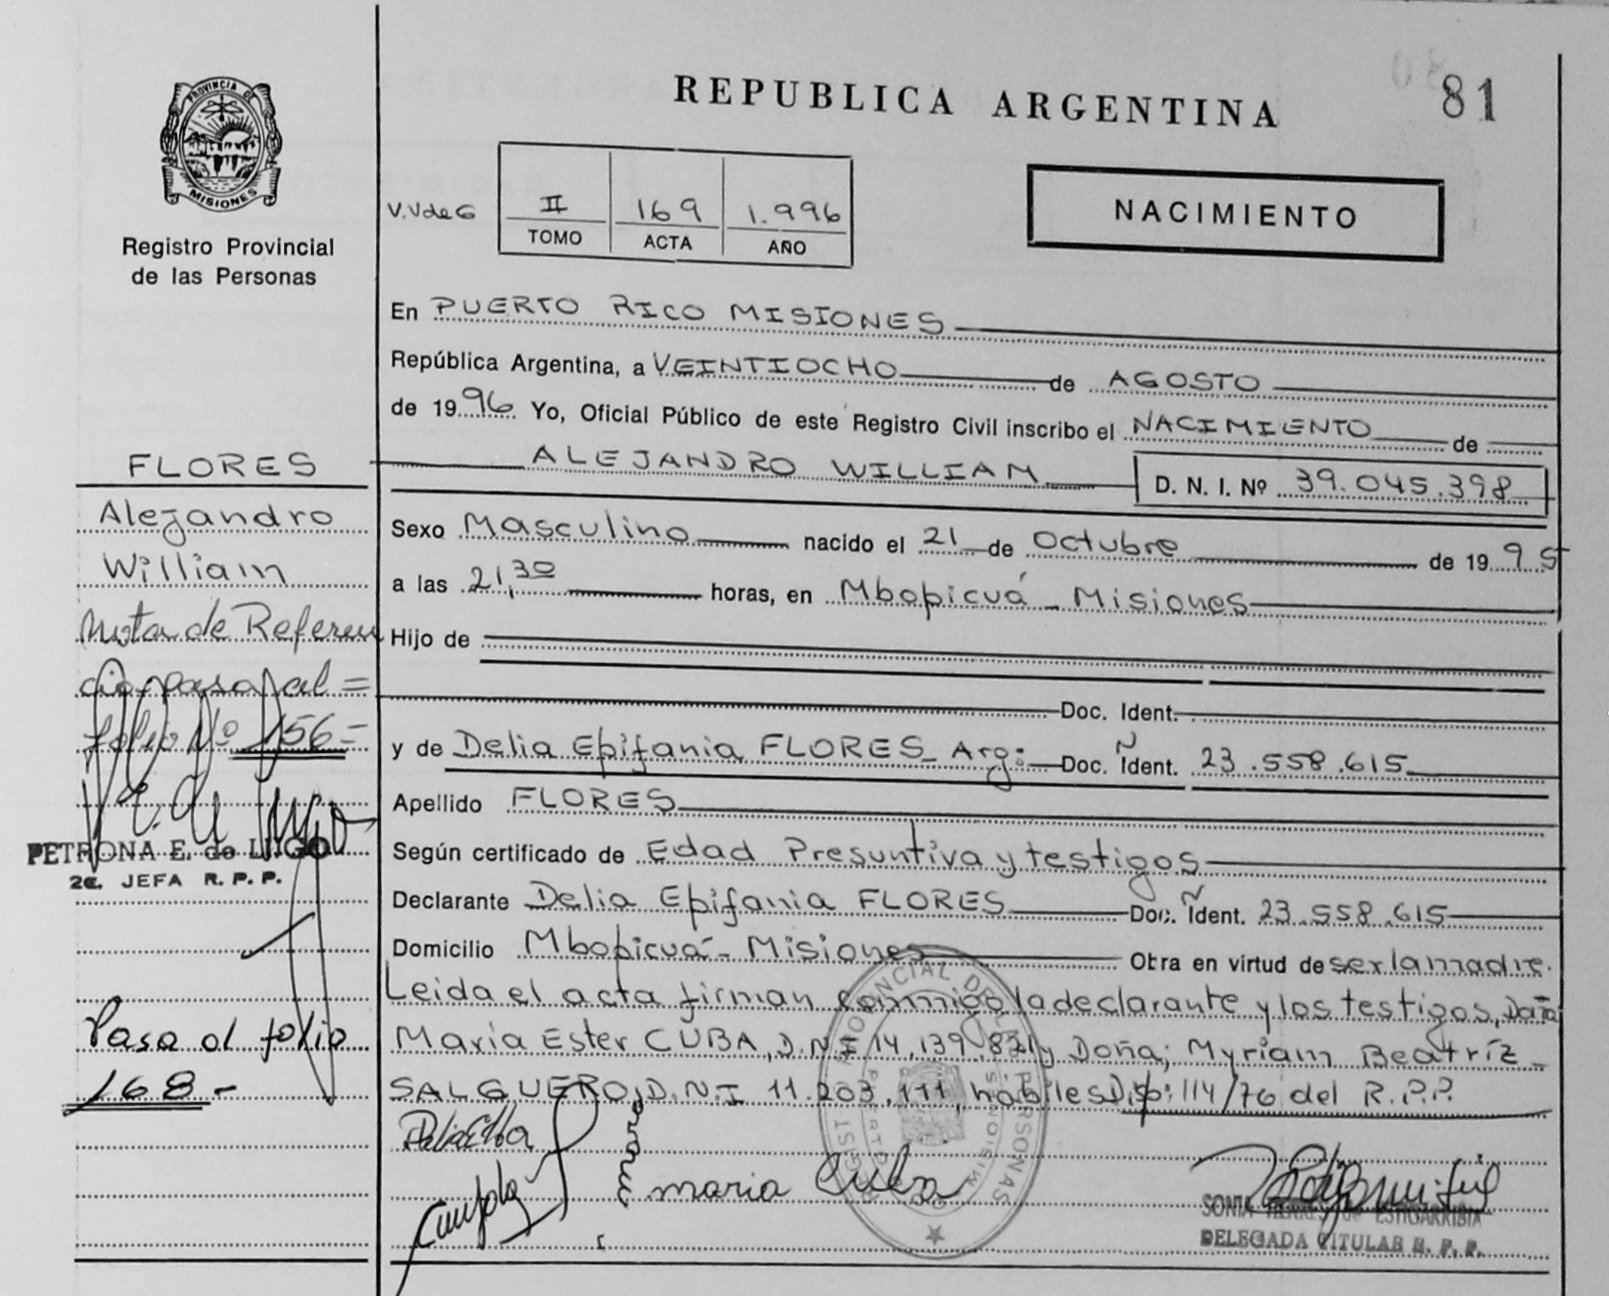 REPUBLICA ARGENTINA
81
PROVINCIA DE
MISIONES
Registro Provincial
de las Personas
V.VdeG
II 169 1.996
TOMO ACTA AÑO
NACIMIENTO
En PUERTO RICO MISIONES
República Argentina, a VEINTIOCHO de AGOSTO
de 1996 Yo, Oficial Público de este Registro Civil inscribo el NACIMIENTO de
ALEJANDRO WILLIAM D. N. I. Nº 39.045.398
Sexo Masculino nacido el 21 de Octubre de 1995
a las 21,30 horas, en Mbopicuá - Misiones
Hijo de
Doc. Ident.
y de Delia Epifania FLORES - Arg: Doc. Ident. 23.558.615
Apellido FLORES
Según certificado de Edad Presuntiva y testigos
Declarante Delia Epifania FLORES Doc. Ident. 23.558.615
Domicilio Mbopicuá - Misiones Obra en virtud de ser la madre.
Leida el acta firman conmigo la declarante y los testigos, Doña
Maria Ester CUBA, D.N.I 14.139.821 y Doña; Myriam Beatríz -
SALGUERO, D.N.I 11.203.111, hábiles Disp: 114/76 del R.P.P.
maria Cuba
SONIA
DELEGADA TITULAR R. P. P.
FLORES
Alejandro
William
Nota de Referen
cia pasa al =
folio Nº 156 =
PETRONA E. de LUGO
2a. JEFA R. P. P.
Pasa al folio
168 -